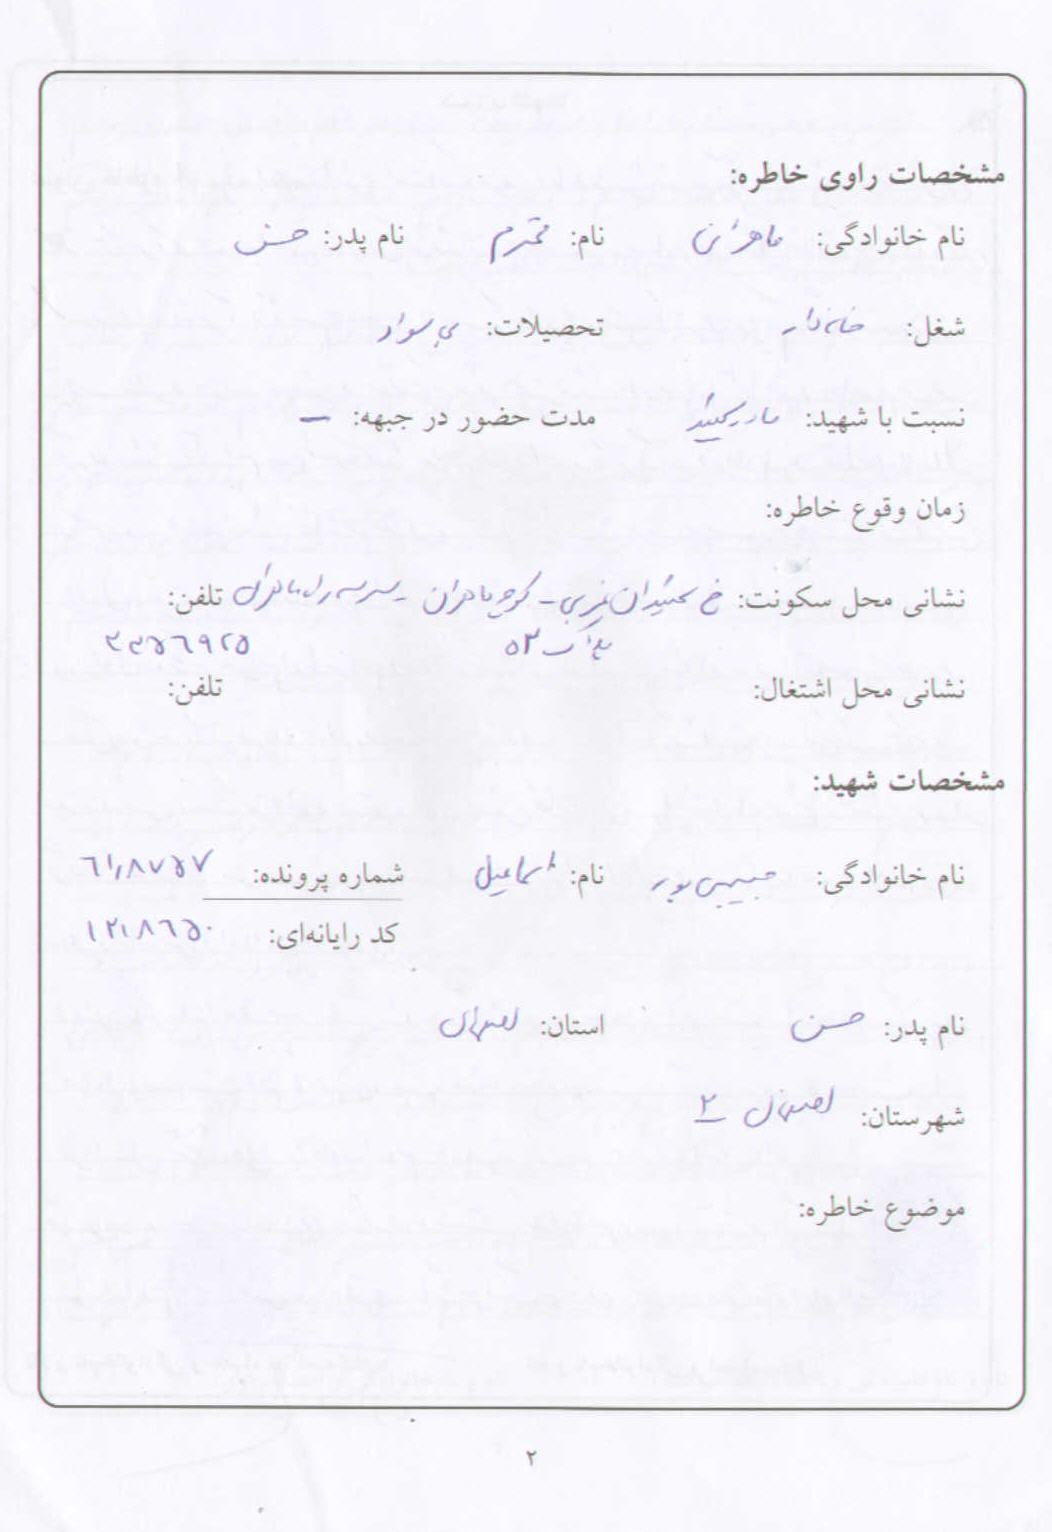 مشخصات راوی خاطره:
نام خانوادگی: ماهرانی نام: محترم نام پدر: حسن
شغل: خانه‌دار تحصیلات: بی سواد
نسبت با شهید: مادر شهید مدت حضور در جبهه: –
زمان وقوع خاطره:
نشانی محل سکونت: خ کوچه تلفن:
پلاک ۵۲
نشانی محل اشتغال: تلفن:
مشخصات شهید:
نام خانوادگی: حبیبی پور نام: اسماعیل شماره پرونده: ۶۱٫۸۷۵۷
کد رایانه‌ای:
نام پدر: حسن استان: اصفهان
شهرستان: اصفهان ۲
موضوع خاطره:
۲